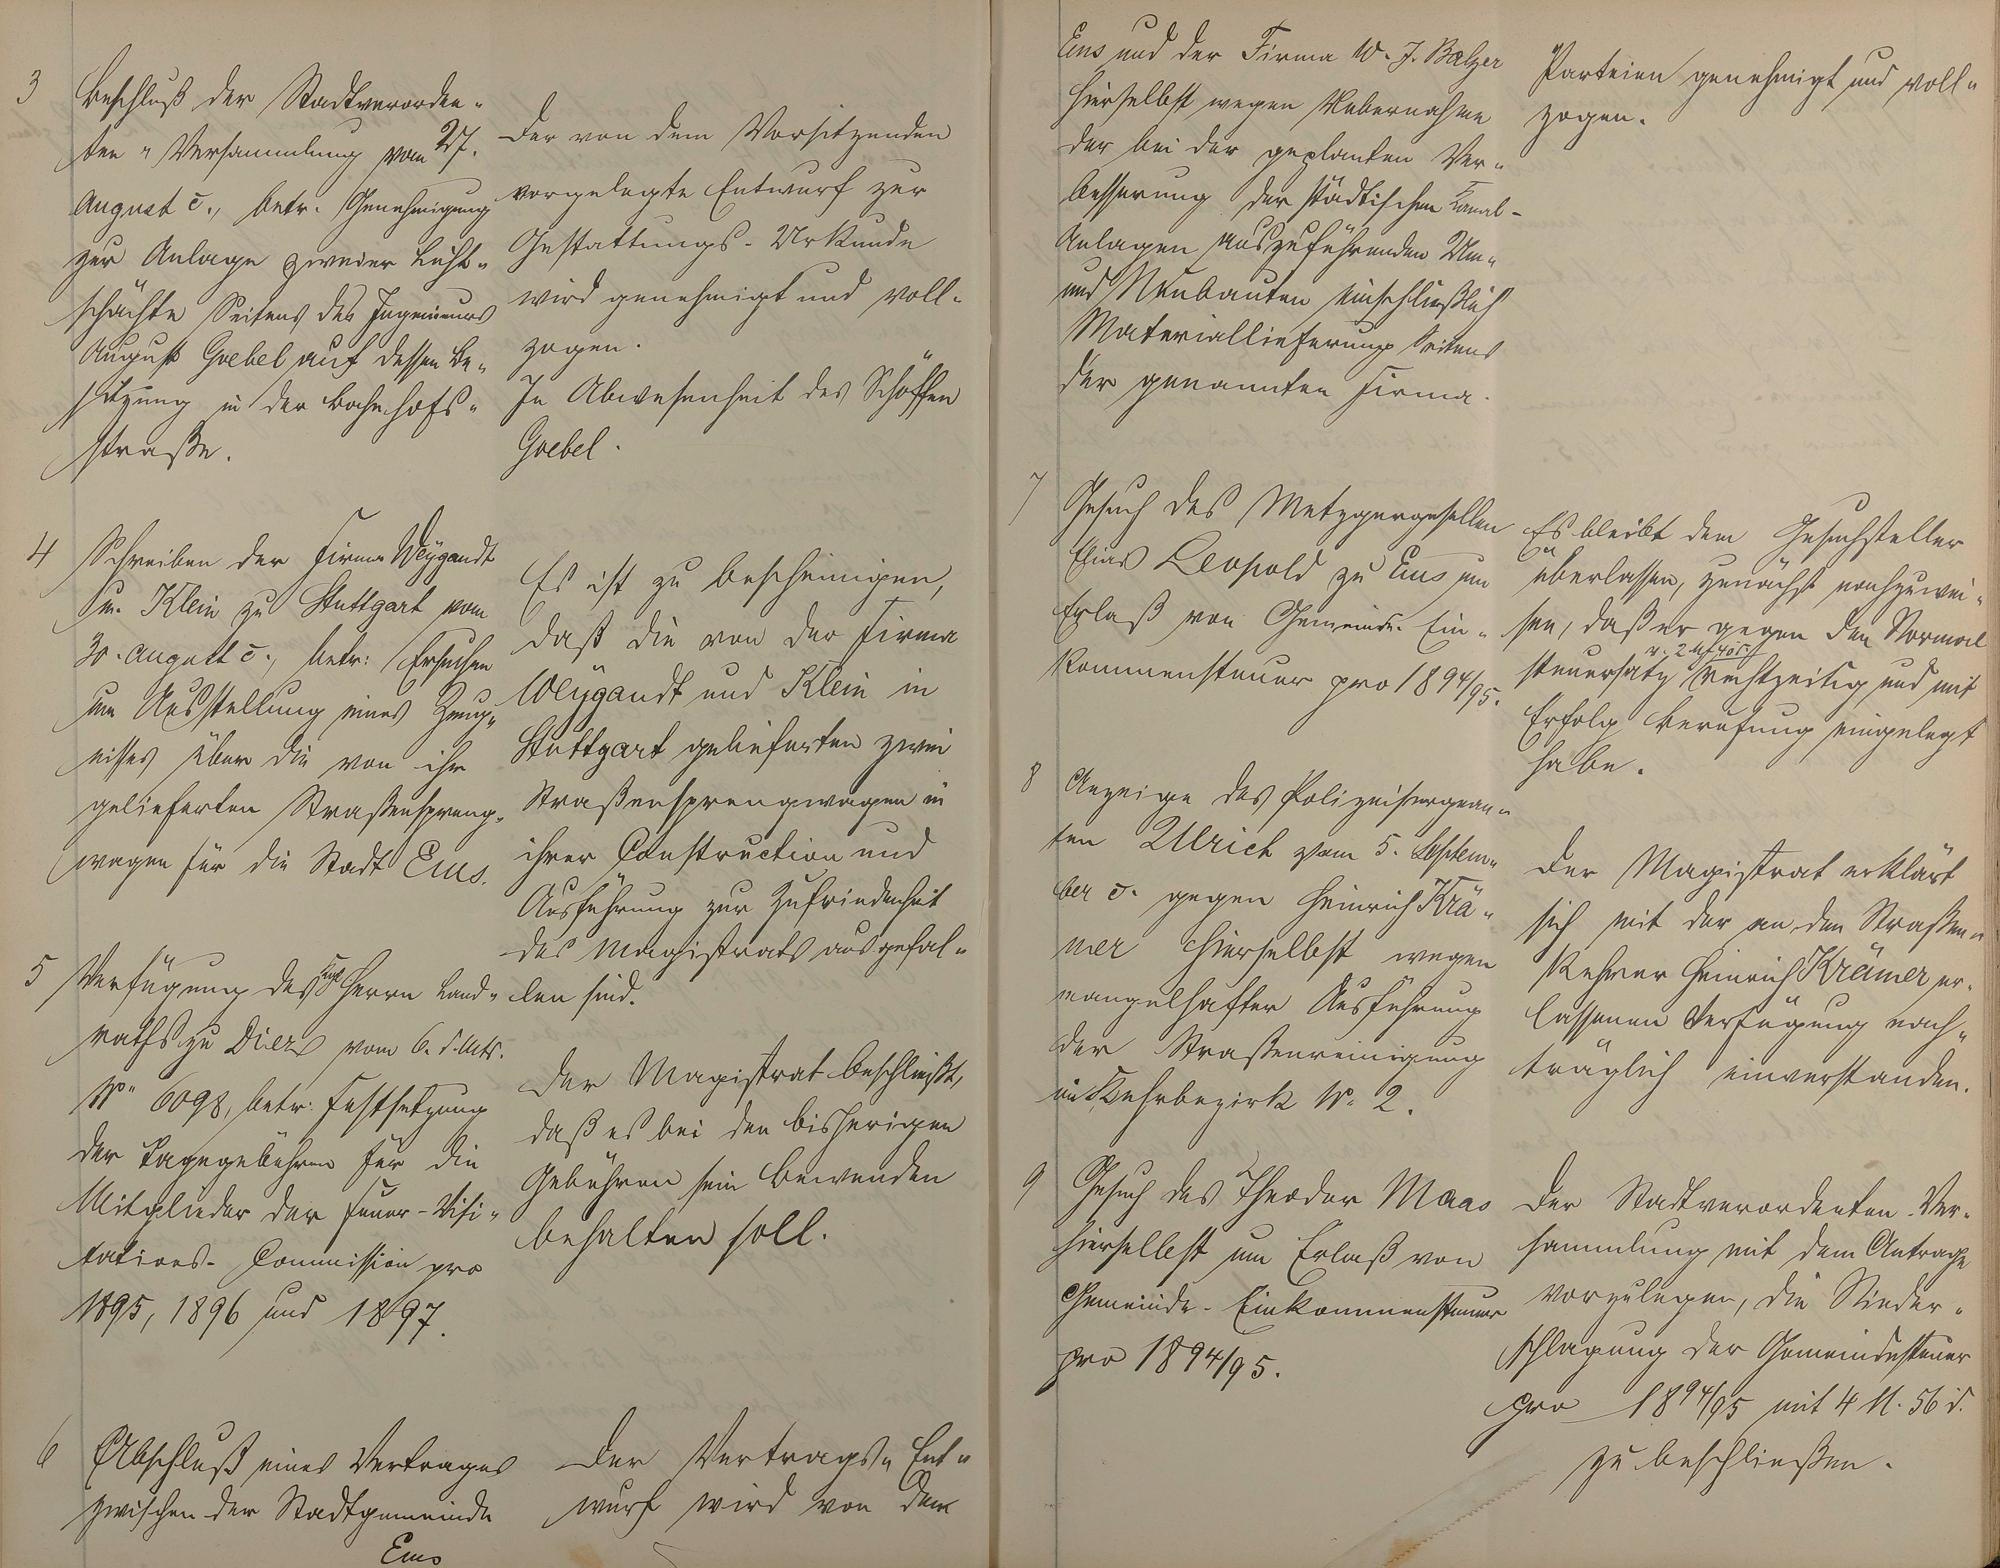 3
Beschluß der Stadtverordne-
ten-Versammlung vom 27.
August c., betr. Genehmigung
zur Anlage zweier Licht-
schächte Seitens des Ingenieurs
August Goebel auf dessen Be-
sitzung in der Bahnhofs-
straße.
Der von dem Vorsitzenden
vorgelegte Entwurf zur
Gestattungs-Urkunde
wird genehmigt und voll-
zogen.
In Abwesenheit des Schöffen
Goebel.
4
Schreiben der Firma Weygandt
u. Klein zu Stuttgart vom
30. August c., betr. Ersuchen
um Ausstellung eines Zeug-
nisses über die von ihr
gelieferten Straßenspreng-
wagen für die Stadt Ems.
Es ist zu bescheinigen,
daß die von der Firma
Weygandt und Klein in
Stuttgart gelieferten zwei
Straßensprengwagen in
ihrer Construction und
Ausführung zur Zufriedenheit
des Magistrats ausgefal-
len sind.
5
Verfügung des Kgl. Herrn Land-
raths zu Diez vom 6. d. Mts.
No 6098, betr. Festsetzung
der Tagegebühren für die
Mitglieder der Feuer-Visi-
tations-Commission pro
1895, 1896 und 1897.
Der Magistrat beschließt,
daß es bei den bisherigen
Gebühren sein Bewenden
behalten soll.
6
Abschluß eines Vertrages
zwischen der Stadtgemeinde
Ems
Der Vertrags-Ent-
wurf wird von den
Ems und der Firma W. J. Balzer
hierselbst wegen Uebernahme
der bei der geplanten Ver-
besserung der städtischen Kanal-
Anlagen auszuführenden Um-
und Neubauten einschließlich
Materiallieferung Seitens
der genannten Firma.
Parteien genehmigt und voll-
zogen.
7
Gesuch des Metzgergesellen
Elias Leopold zu Ems um
Erlaß von Gemeinde-Ein-
kommensteuer pro 1894/95.
Es bleibt dem Gesuchsteller
überlassen, zunächst nachzuwei-
sen, daß er gegen den Normal
steuersatz v. 2 M 40 rechtzeitig und mit
Erfolg Berufung eingelegt
habe.
8
Anzeige des Polizeisergean-
ten Ulrich vom 5. Septem-
ber c. gegen Heinrich Krä-
mer hierselbst wegen
mangelhafter Ausführung
der Straßenreinigung
im Kehrbezirk No. 2.
Der Magistrat erklärt
sich mit der an den Straßen-
kehrer Heinrich Krämer er-
lassenen Verfügung nach-
träglich einverstanden.
9
Gesuch des Theodor Maas
hierselbst um Erlaß von
Gemeinde-Einkommensteuer
pro 1894/95.
Der Stadtverordneten-Ver-
sammlung mit dem Antrage
vorzulegen, die Nieder-
schlagung der Gemeindesteuer
pro 1894/95 mit 4 M. 56 d.
zu beschließen.